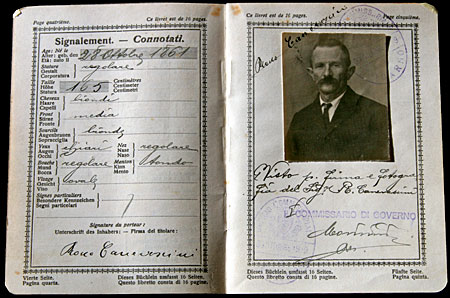 Page quatrième.
Ce livret est de 16 pages.
Signalement. — Connotati.
Age: Né le
Alter: geb. den
Età: nato il
28 Ottobre 1861
Stature
Gestalt
Corporatura
regolare
Taille
Höhe
Statura
165
Centimètres
Centimeter
Centimetri
Cheveux
Haare
Capelli
biondi
Front
Stirne
Fronte
media
Sourcils
Augenbrauen
Sopracciglia
biondi
Yeux
Augen
Occhi
Nez
Nase
Naso
regolare
Bouche
Mund
Bocca
regolare
Menton
Kinn
Mento
tondo
Visage
Gesicht
Viso
ovale
Signes particuliers
Besondere Kennzeichen
Segni particolari
Signature du porteur:
Unterschrift des Inhabers: — Firma del titolare:
Vierte Seite.
Pagina quarta.
Dieses Büchlein umfasst 16 Seiten.
Questo libretto consta di 16 pagine.
Ce livret est de 16 pages.
Page cinquième.
Visto p. firma e fotogra
fia del Sig.
COMMISSARIO DI GOVERNO
Dieses Büchlein umfasst 16 Seiten.
Questo libretto consta di 16 pagine.
Fünfte Seite.
Pagina quinta.